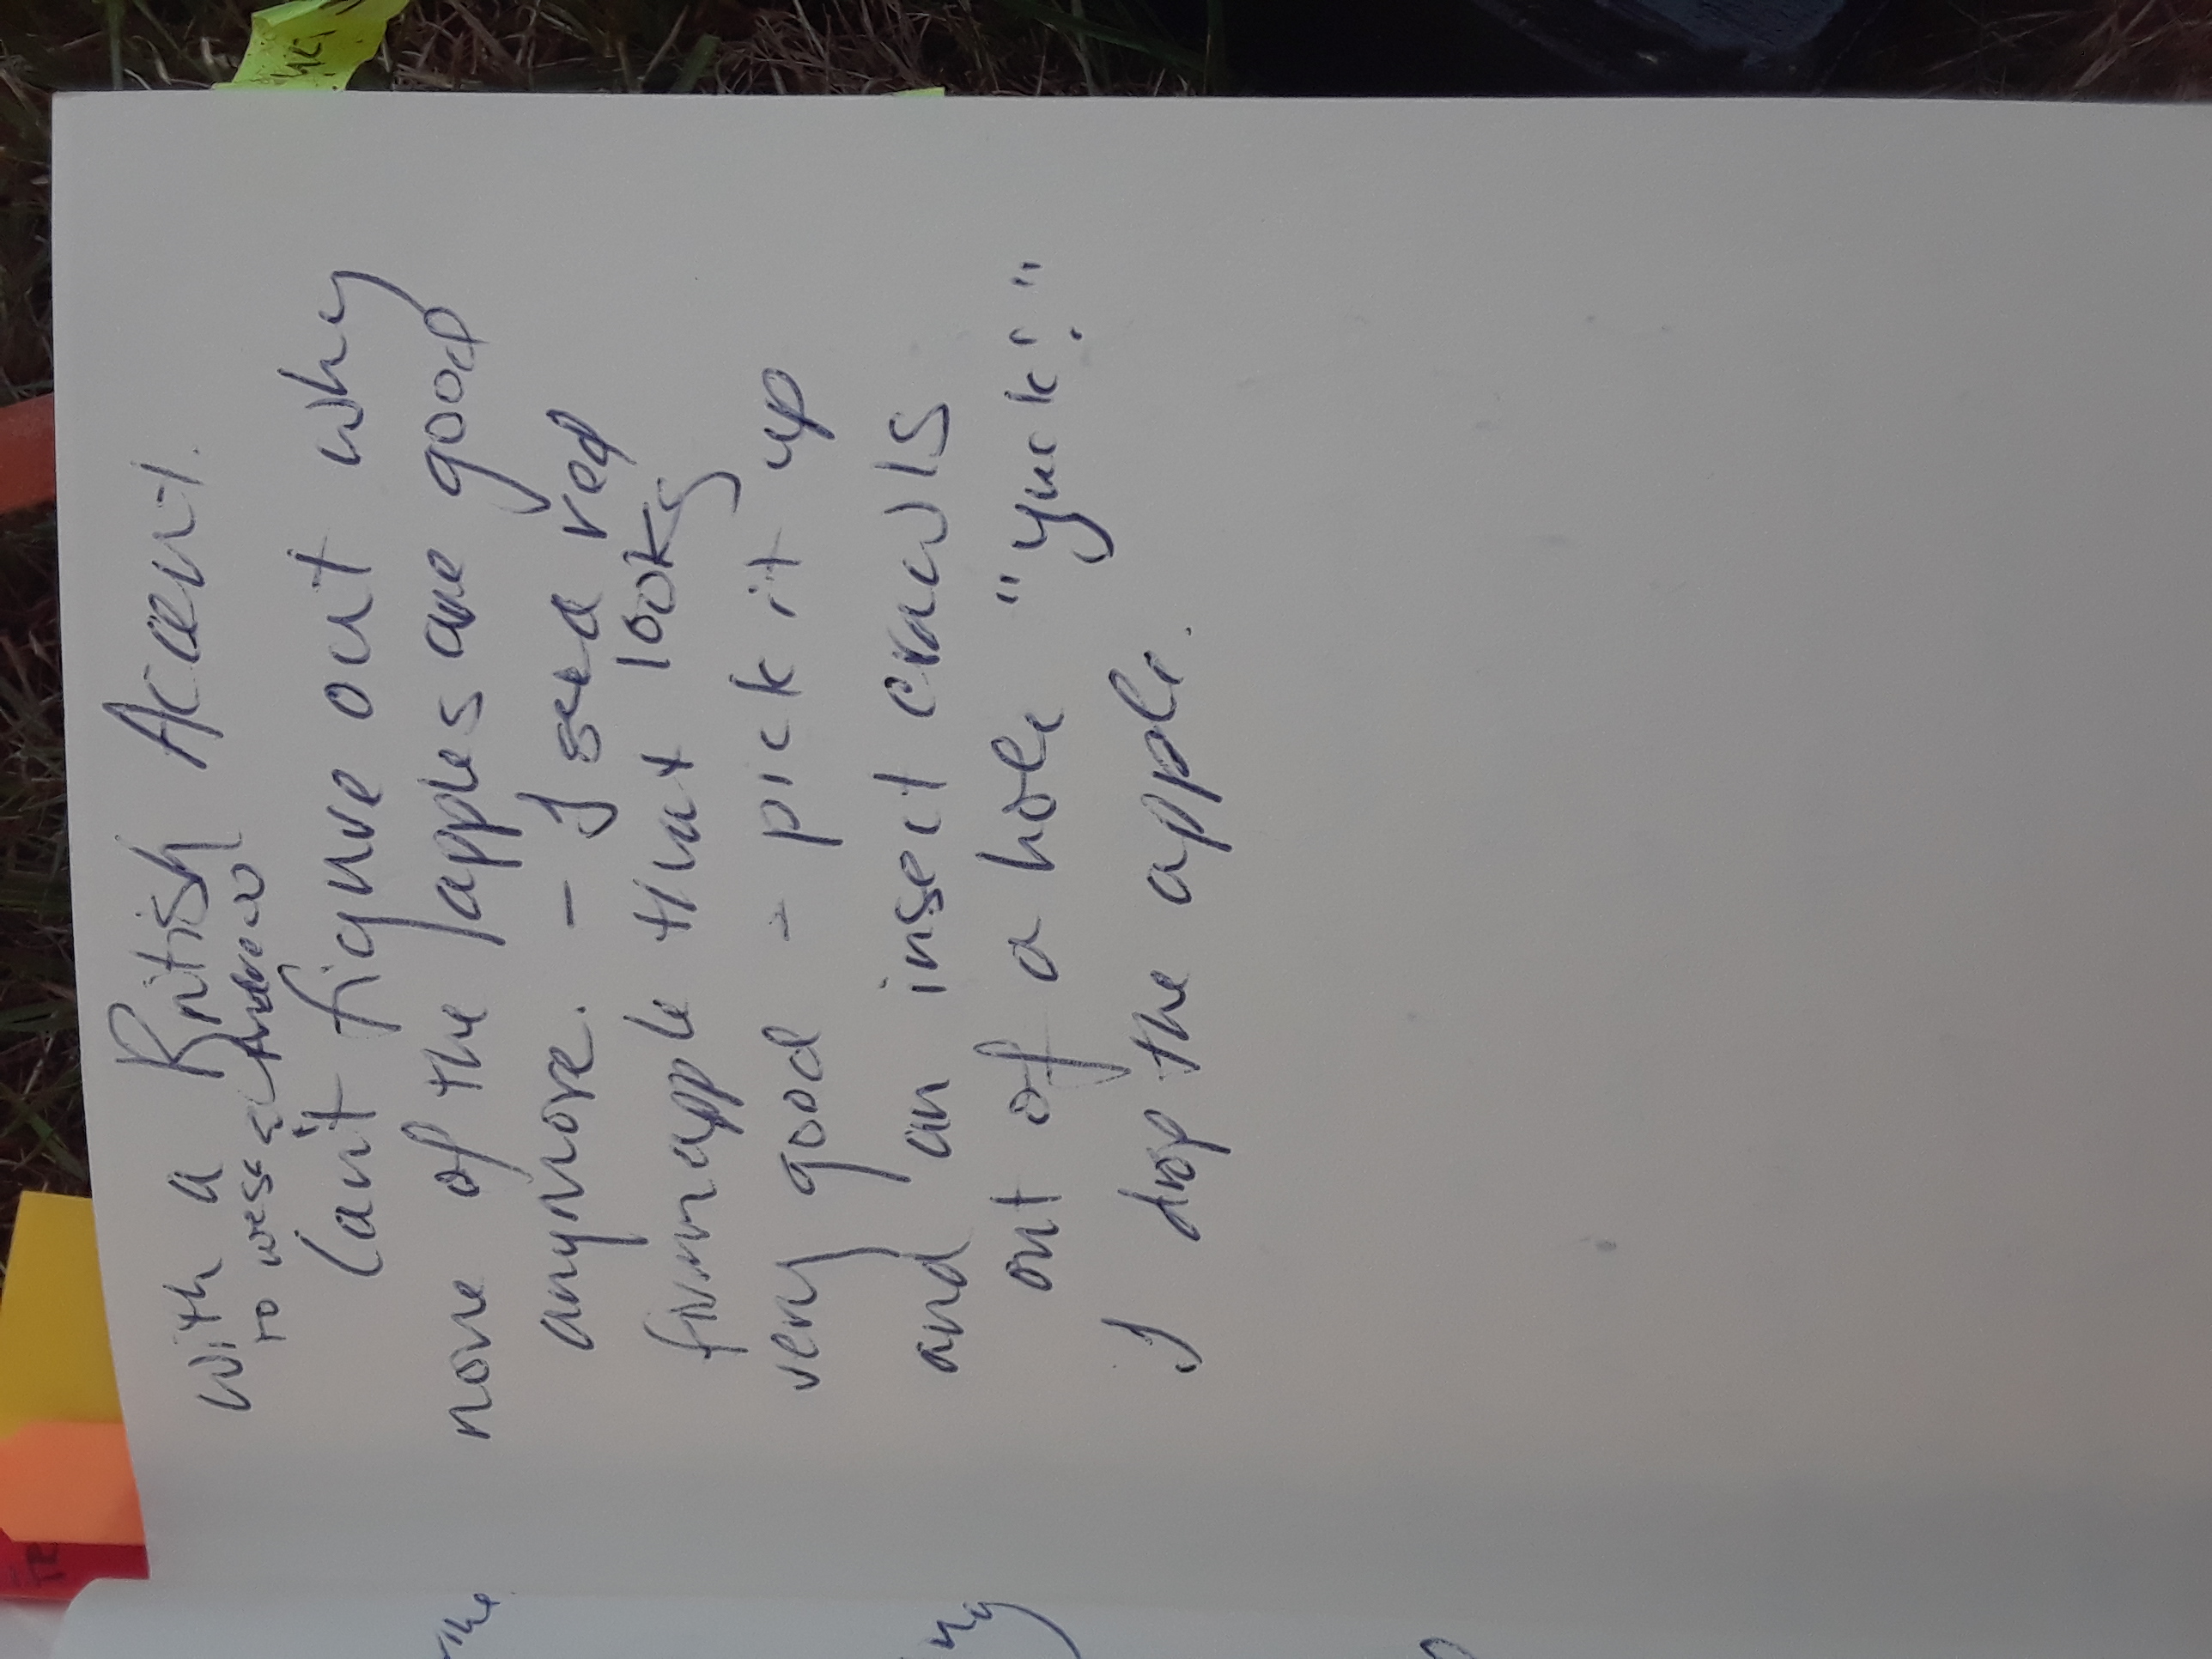 With a British Accent.
to wess & Andrew
Can't figure out why
none of the apples are good
anymore. - I see a red
firm apple that looks
very good - pick it up
and an insect crawls
out of a hole "yuck!"
I drop the apple.